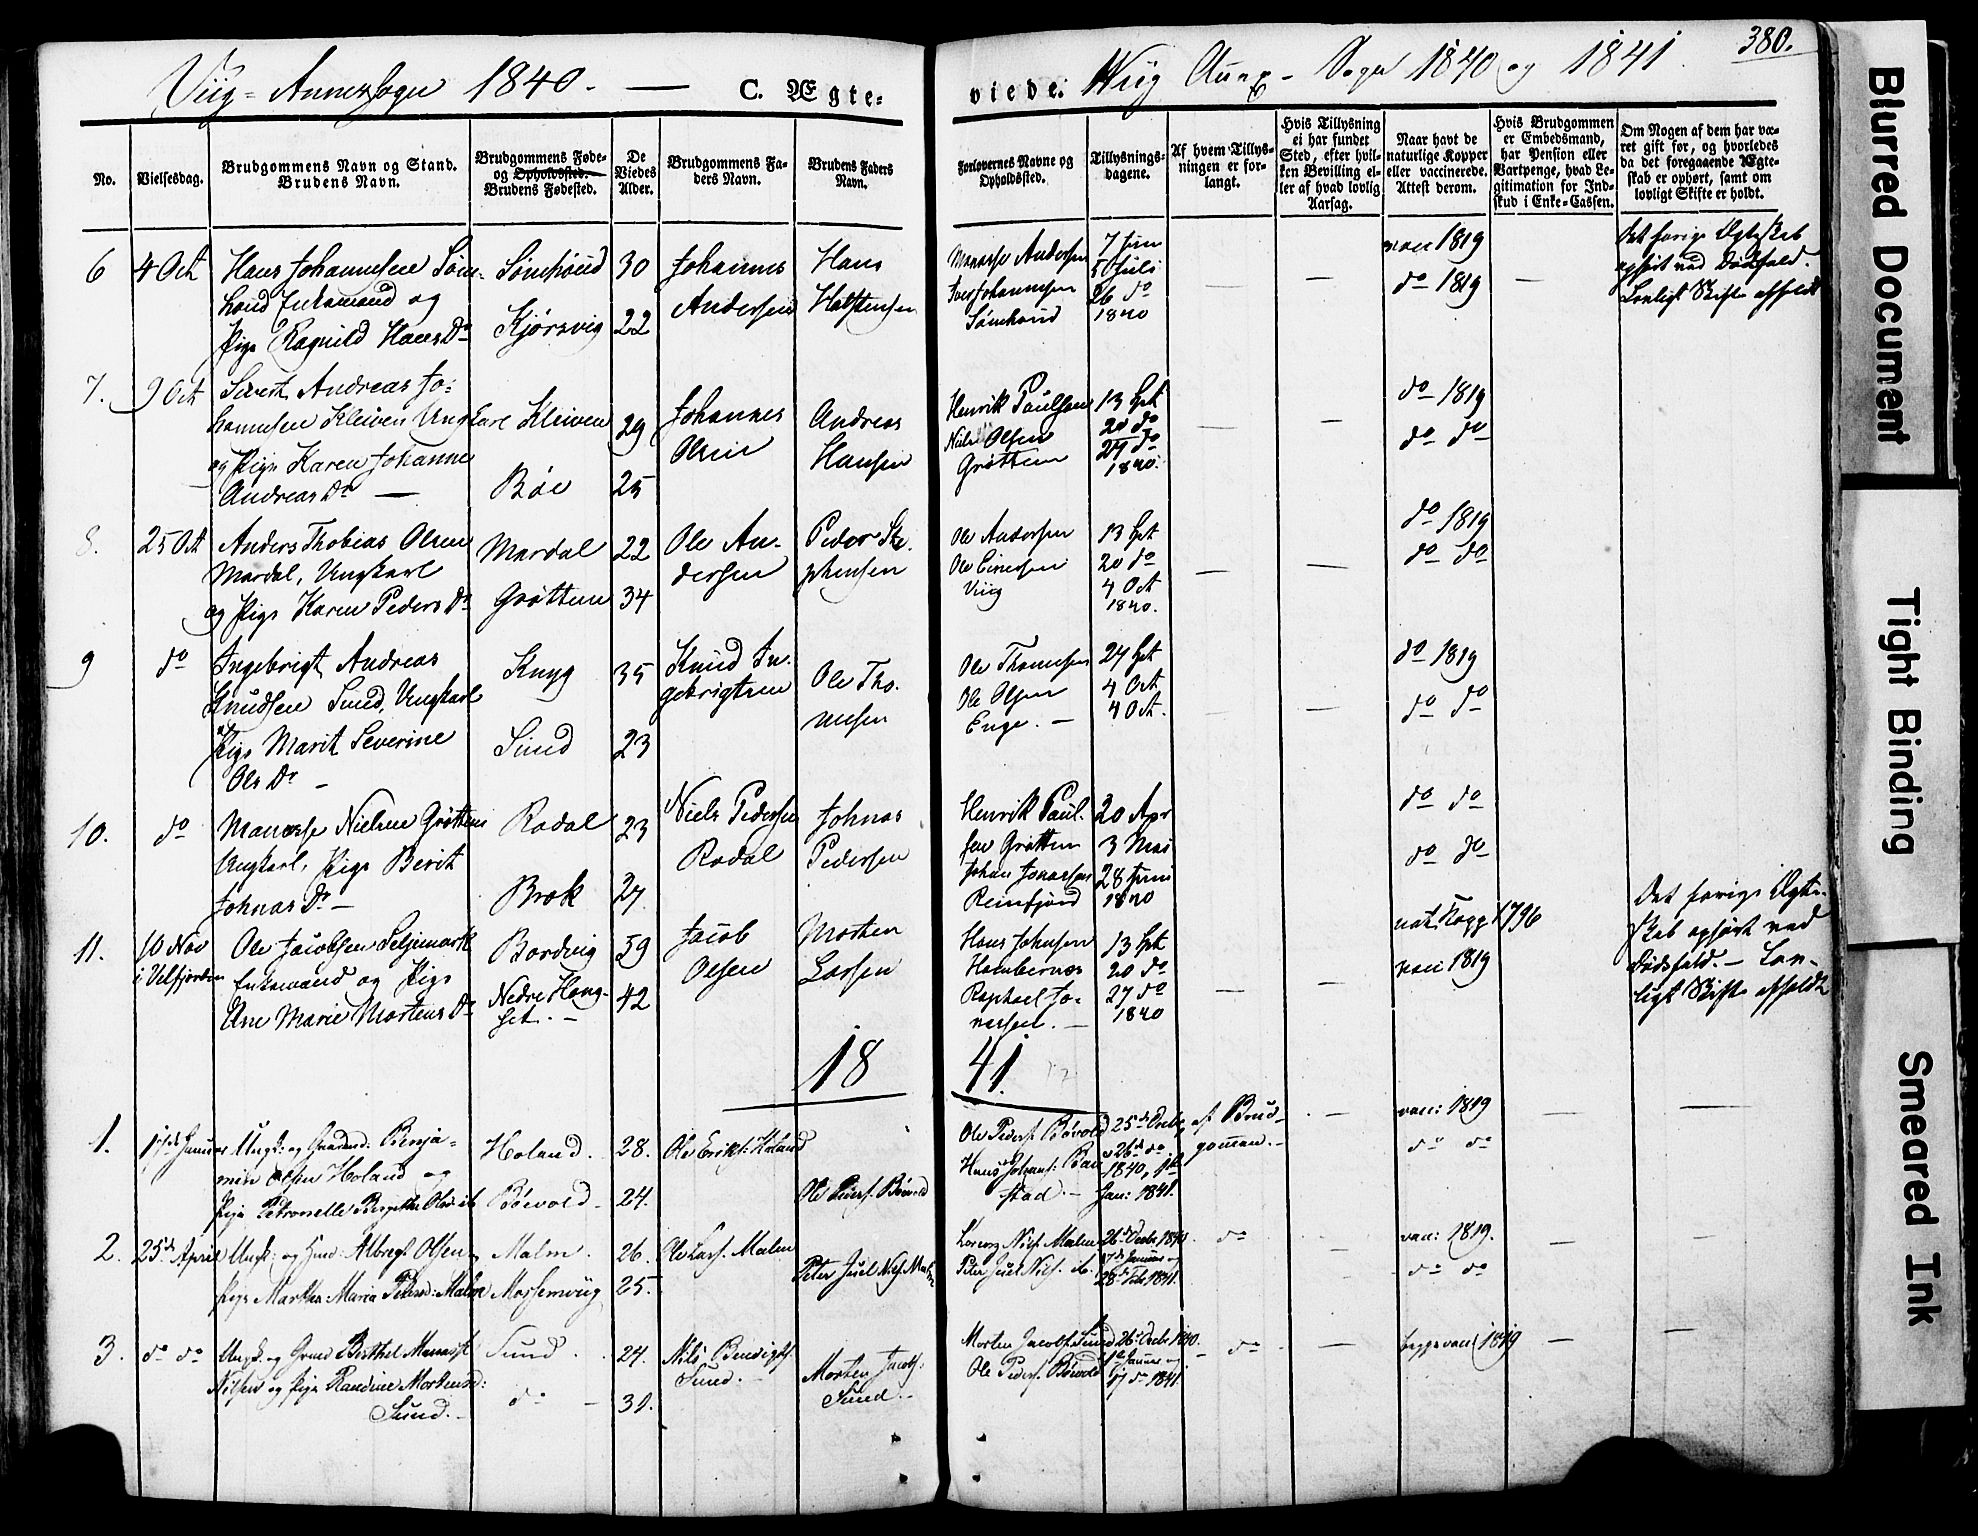 380.
Viig - Annexsogn 1840. — C. Ægte-
viede. Wiig Annex - Sogn 1840 og 1841.
No.
Vielsesdag.
Brudgommens Navn og Stand.
Brudens Navn.
Brudgommens Føde-
og Opholdssted.
Brudens Fødested.
De
Viedes
Alder.
Brudgommens Fa-
ders Navn.
Brudens Faders
Navn.
Forlovernes Navne og
Opholdssted.
Tillysnings-
dagene.
Af hvem Tillys-
ningen er for-
langt.
Hvis Tillysning
ei har fundet
Sted, efter hvil-
ken Bevilling el-
ler af hvad lovlig
Aarsag.
Naar havt de
naturlige Kopper
eller vaccinerede.
Attest derom.
Hvis Brudgommen
er Embedsmand,
har Pension eller
Vartpenge, hvad Le-
gitimation for Ind-
skud i Enke-Cassen.
Om Nogen af dem har væ-
ret gift før, og hvorledes
da det foregaaende Ægte-
skab er ophørt, samt om
lovligt Skifte er holdt.
6
4 Oct
Hans Johannesen Søm-
houd Enkemand og
Pige Ragnild HansDr
Sømhoud
Kjørsvig
30
22
Johannes
Andersen
Hans
Halstensen
Manasse Andersen
Iver Johannesen
Sømhoud
7 Juni
5 Juli
26 do
1840
vacc 1819
do 1819
Det forige Ægteskab
ophørt ved Dødsfald.
Lovligt Skifte afholdt
7.
9 Oct
Andreas Jo-
hannesen Kleiven Ungkarl
og Pige Karen Johanne
AndreasDr —
Kleiven
Bøe
29
25
Johannes
Olsen
Andreas
Hansen
Henrik Paulsen
Niels Olsen
Grøttem
13 Spt
20 do
27 do
1840.
do 1819
do do
8.
25 Oct
Anders Thobias Olsen
Mardal, Ungkarl
og Pige Karen PedersDr
Mardal
Grøttem
22
34
Ole An-
dersen
Peder Ste-
phensen
Ole Andersen
Ole Einersen
Viig
13 Spt
20 do
4 Oct
1840.
do 1819
do do
9
do
Ingebrigt Andreas
Knudsen Sund, Ungkarl
Pige Marit Severine
OlsDr —
Knyg
Sund
35
23
Knud In-
gebrigtsen
Ole Tho-
mesen
Ole Thomesen
Ole Olsen
Enge. —
27 Spt
4 Oct
4 Oct.
do 1819
do do
10.
do
Manasse Nielsen Grøttem
Ungkarl, Pige Berit
JohnasDr —
Rodal
Brok
23
27
Niels Pedersen
Rodal
Johnas
Pedersen
Henrik Paul-
sen Grøttem
Johan Jonassen
Reinfjord
20 Apr
3 Mai
28 Juni
1840
do do
do do
11.
10 Nov
i Velfjorden
Ole Jacobsen Seljemark
Enkemand og Pige
Ane Marie MortensDr
Bordvig
Nedre Houg-
set. —
59
42
Jacob
Olsen
Morten
Larsen
Hans Johnsen
Hambernæs
Raphael Jo-
nassen. —
13 Spt
20 do
27 do
1840
nat. Kopp 1796
vacc 1819
Det forige Ægte-
skab ophørt ved
Dødsfald. — Lov-
ligt Skifte afholdt
18 41.
1.
17de Januar
Ungk: og Gaardmd: Benja-
min Olsen Holand og
Pige Petronelle Birgitte Olsdtr
Holand.
Bøevold.
28.
24.
Ole Eriks: Holand
Ole Peders: Bøvold
Ole Peders: Bøvold
Hans Johans: Bau-
stad. —
25de Decbr,
26de do
1840, 1ste
Jan: 1841.
af Brud-
gommen. —
vacc: 1819
do do
2.
25de April
Ungk: og Gmd: Albregt Olsen
Pige Martha Maria Pedersd: Malm
Malm.
Mossemviig
26.
25.
Ole Lars: Malm
Peter Juel Nils: Malm
Lorentz Nils: Malm
Peter Juel Nils: ib.
26de Decbr 1840
17de Januar og
28de Feb. 1841.
do
vacc: 1819.
do do
3.
do do
Ungk. og Gmd Berthel Manass:
Nilsen og Pige Randine Mortensd:
Sund. —
Sund.
do
24.
31.
Nils Bendigts:
Sund. —
Morten Jacobs:
Sund. —
Morten Jacobs: Sund
Ole Peders: Bøvold
26de Decbr 1840.
1ste Januar og
17 do 1841.
do
begge vacc: 1819
Blurred Document
Tight Binding
Smeared Ink